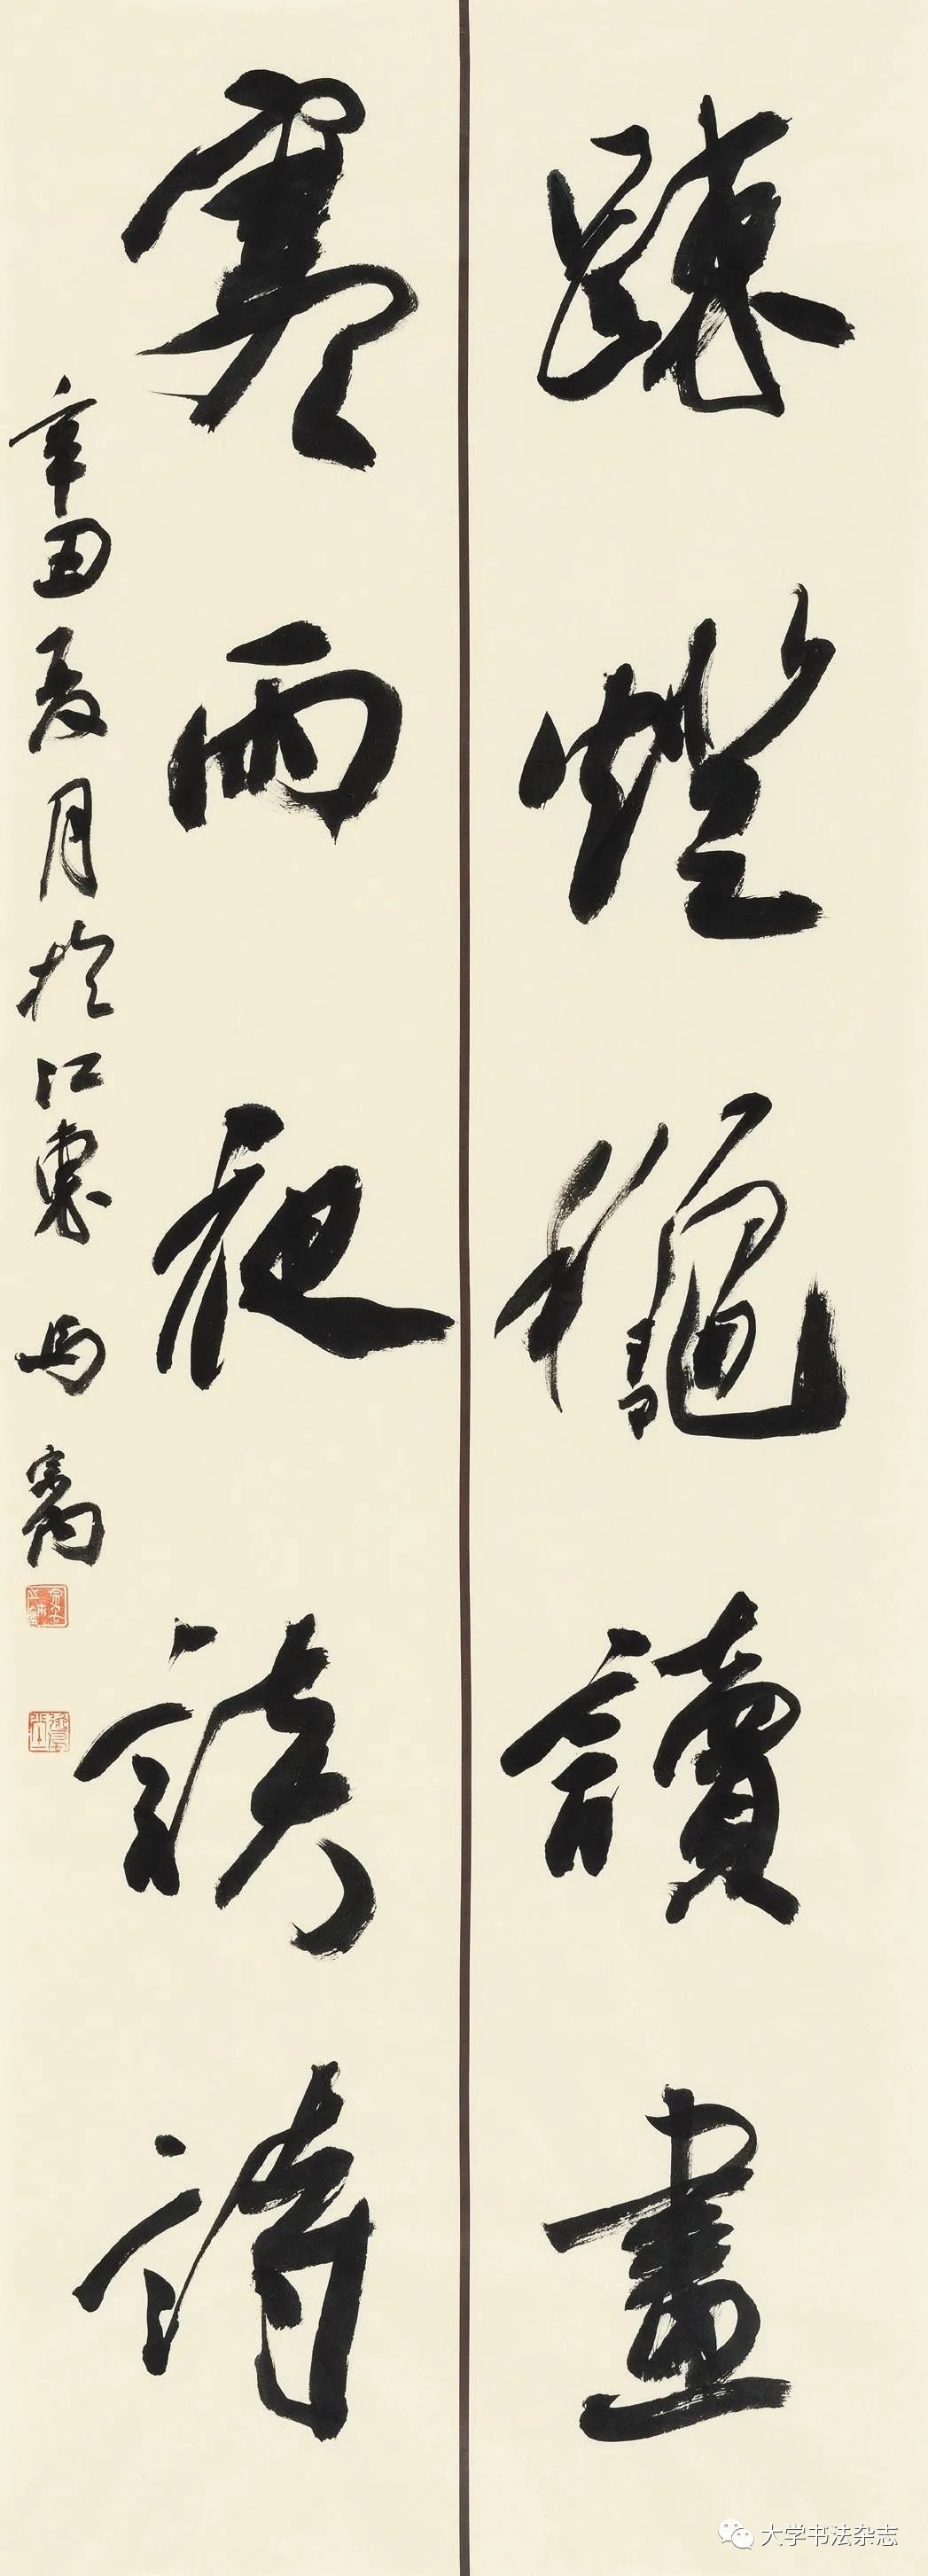 疏燈龝讀畫
寒雨夜談詩
辛丑夏月於江東馬
大学书法杂志